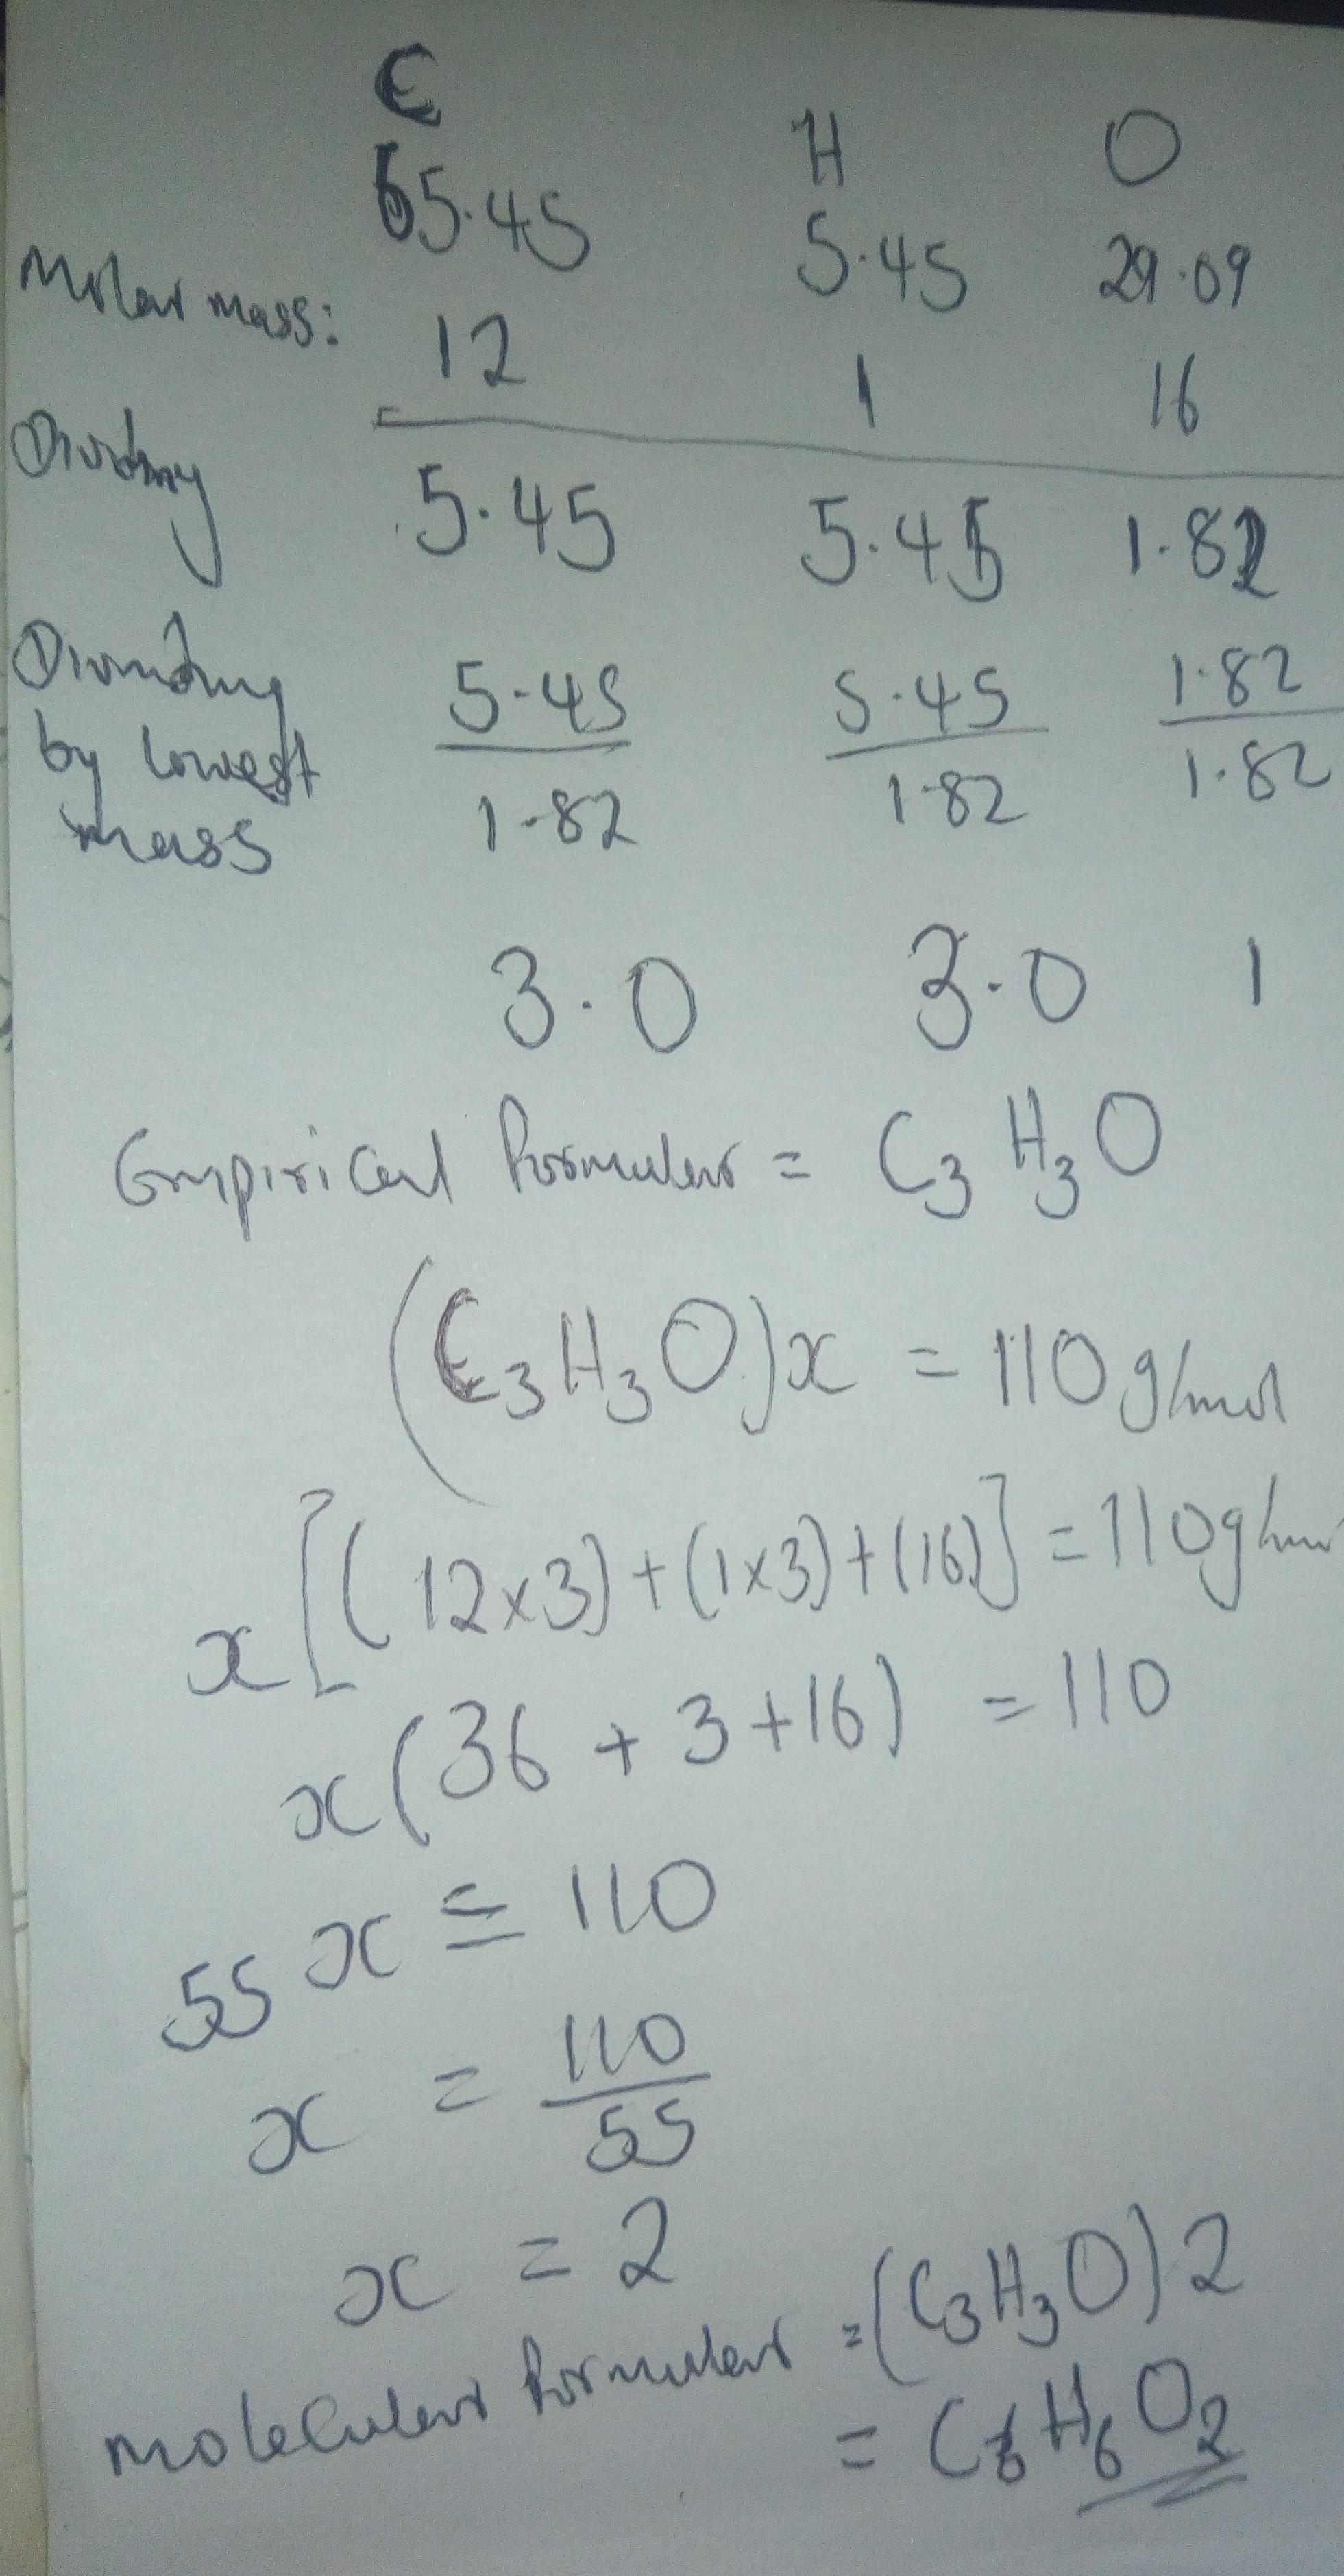 C H O
65.45 5.45 29.09
Molar mass: 12 1 16
Dividing 5.45 5.45 1.82
Dividing by lowest mass 5.45/1.82 5.45/1.82 1.82/1.82
3.0 3.0 1
Empirical formular = C₃H₃O
(C₃H₃O)x = 110g/mol
x[(12x3)+(1x3)+(16)] = 110g/mol
x(36 + 3 + 16) = 110
55x = 110
x = 110/55
x = 2
Molecular formular = (C₃H₃O)2
= C₆H₆O₂